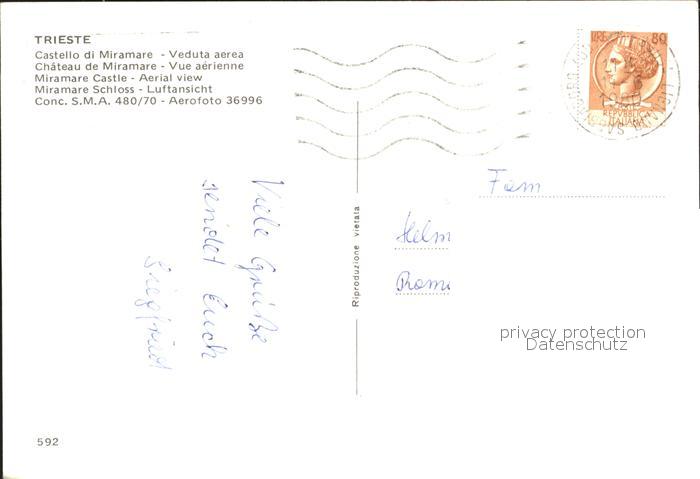 TRIESTE
Castello di Miramare - Veduta aerea
Château de Miramare - Vue aérienne
Miramare Castle - Aerial view
Miramare Schloss - Luftansicht
Conc. S.M.A. 480/70 - Aerofoto 36996
LIRE 80
REPVBBLICA
ITALIANA
Viele Grüße
sendet Euch
Siegfried
Riproduzione vietata
Fam
Helm
Romi
privacy protection
Datenschutz
592